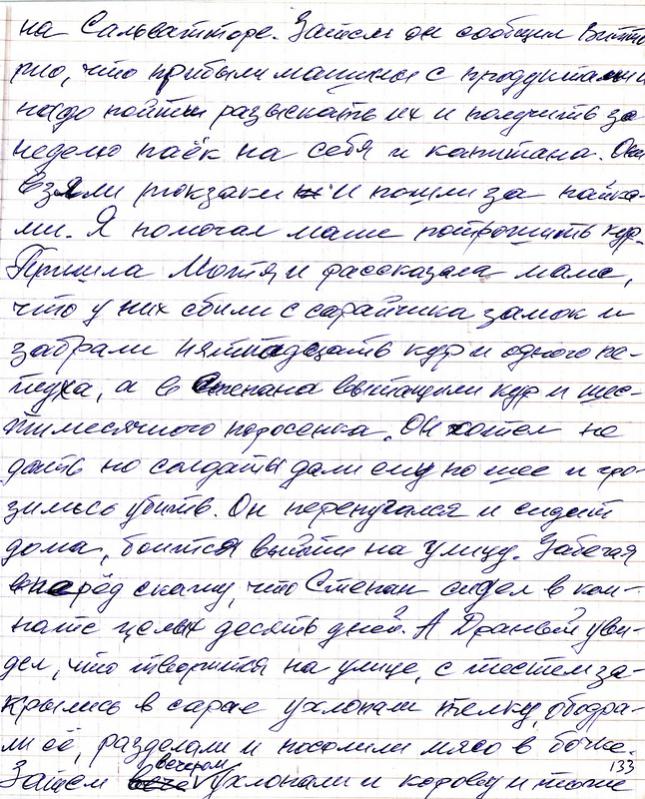 на Сальватторе. Затем он сообщил Витто
рио, что прибыли машины с продуктами и
надо пойти разыскать их и получить за
неделю паёк на себя и капитана. Они
взяли рюкзаки и пошли за пайка-
ми. Я помогал маме потрошить кур.
Пришла Мотя и рассказала маме,
что у них сбили с сарайчика замок и
забрали пятнадцать кур и одного пе-
туха, а в Степана вытащили кур и шес-
тимесячного поросенка. Он хотел не
дать но солдаты дали ему по шее и гро-
зились убить. Он перепугался и сидит
дома, боится выйти на улицу. Забегая
вперёд скажу, что Степан сидел в ком-
нате целых десять дней. А Драный уви-
дел, что творится на улице, с тестем за-
крылись в сарае ухлопали телку, ободра-
ли её, разделали и посолили мясо в бочке.
Затем вечером ухлопали и корову и тоже
133